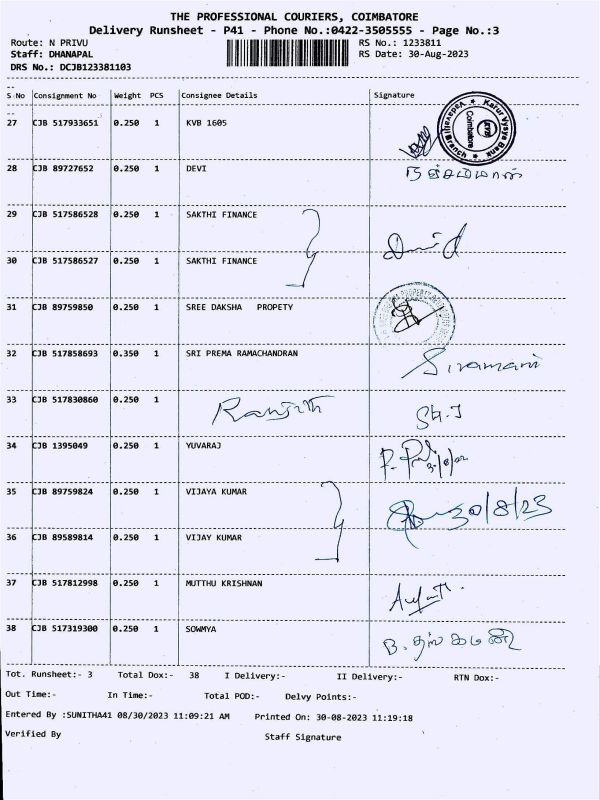 THE PROFESSIONAL COURIERS, COIMBATORE
Delivery Runsheet - P41 - Phone No.:0422-3505555 - Page No.:3
Route: N PRIVU RS No.: 1233811
Staff: DHANAPAL RS Date: 30-Aug-2023
DRS No.: DCJB123381103
S No Consignment No Weight PCS Consignee Details Signature
27 CJB 517933651 0.250 1 KVB 1605
Karur Vysya Bank
Coimbatore
28 CJB 89727652 0.250 1 DEVI
29 CJB 517586528 0.250 1 SAKTHI FINANCE
30 CJB 517586527 0.250 1 SAKTHI FINANCE
31 CJB 89759850 0.250 1 SREE DAKSHA PROPETY
32 CJB 517858693 0.350 1 SRI PREMA RAMACHANDRAN Sivamani
33 CJB 517830860 0.250 1 Ranjith
34 CJB 1395049 0.250 1 YUVARAJ
35 CJB 89759824 0.250 1 VIJAYA KUMAR 30/8/23
36 CJB 89589814 0.250 1 VIJAY KUMAR
37 CJB 517812998 0.250 1 MUTTHU KRISHNAN
38 CJB 517319300 0.250 1 SOWMYA
Tot. Runsheet:- 3 Total Dox:- 38 I Delivery:- II Delivery:- RTN Dox:-
Out Time:- In Time:- Total POD:- Delvy Points:-
Entered By :SUNITHA41 08/30/2023 11:09:21 AM Printed On: 30-08-2023 11:19:18
Verified By Staff Signature